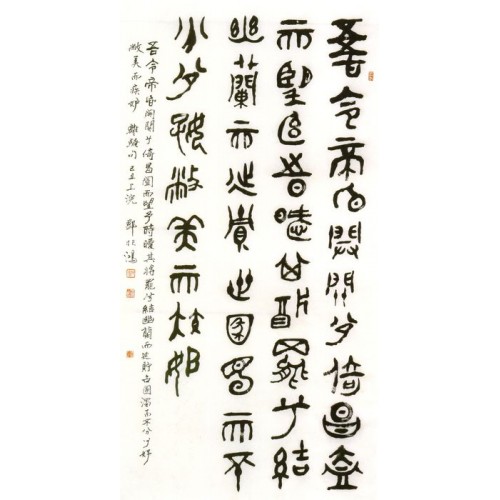 吾令帝昏開關兮倚昌盍
而望予時曖其將罷兮結
幽蘭而延貯世圂濁而不
分兮好蔽美而疾妒
吾令帝昏開關兮倚昌盍而望予時曖其將罷兮結幽蘭而延貯世圂濁而不分兮好
蔽美而疾妒 離騷句 己丑上浣 鄭